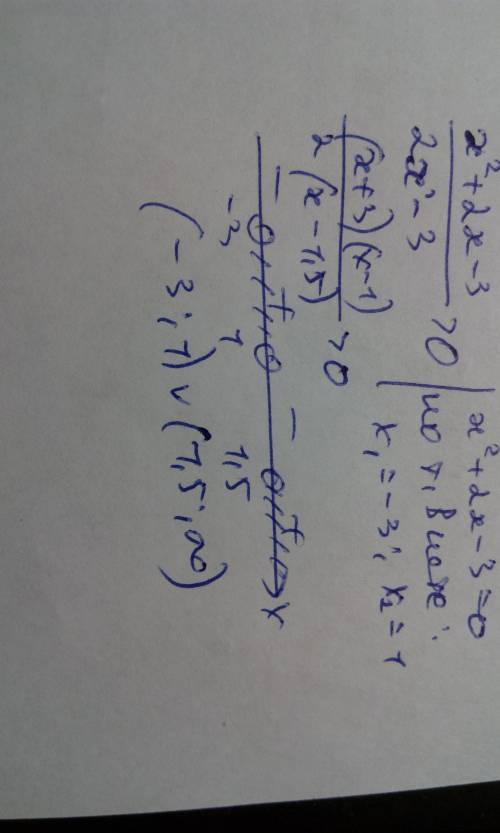 x² + 2x - 3 / 2x - 3 > 0
x² + 2x - 3 = 0
по т. Виета:
x₁ = -3; x₂ = 1
(x+3)(x-1) / 2(x-1,5) > 0
- + - + x
-3 1 1,5
(-3; 1) ∪ (1,5; ∞)